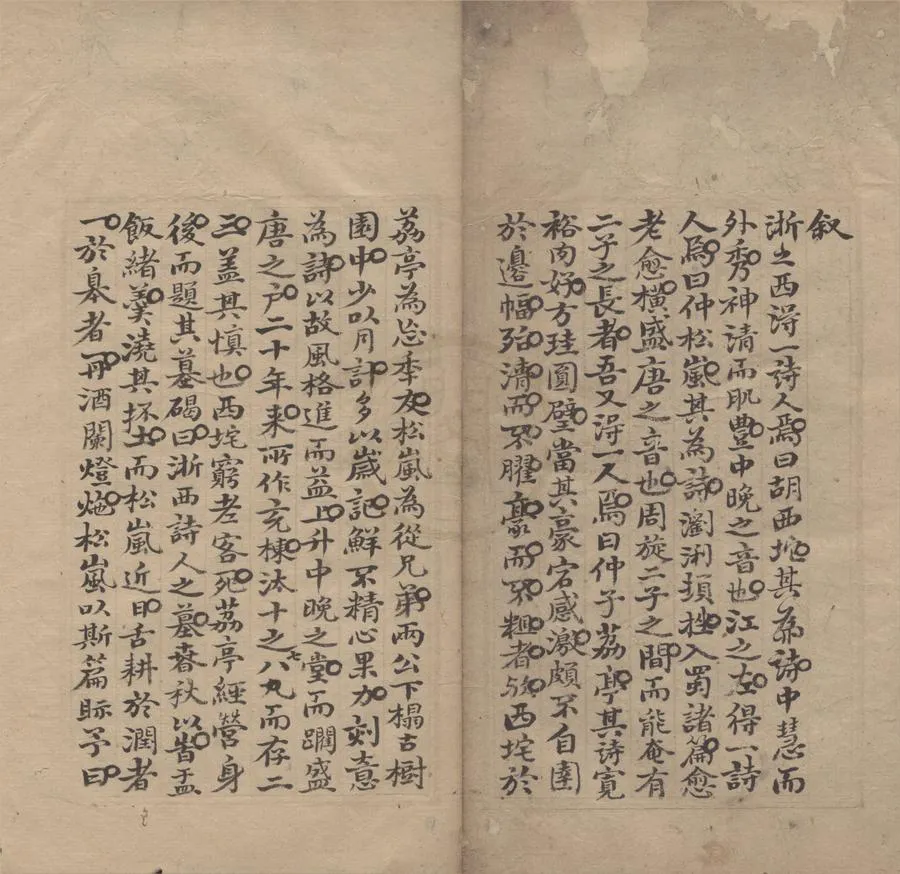 叙
浙之西得一詩人焉曰胡西垞其為詩中慧而
外秀神清而肌豐中晚之音也江之左得一詩
人焉曰仲松嵐其為詩瀏浰頊挫入蜀諸篇愈
老愈橫盛唐之音也周旋二子之間而能奄有
二子之長者吾又得一人焉曰仲子荔亭其詩寬
裕肉好方珪圓璧當其豪宕感激頗不自圉
於邊幅殆清而不臞豪而不粗者歟西垞於
荔亭為忘季友松嵐為從兄弟兩公下榻古樹
園中少以月計多以歲記鮮不精心果力刻意
為詩以故風格進而益上升中晚之堂而躝盛
唐之户二十年来所作充棟汰十之七八九而存二
三蓋其慎也西垞窮老客死荔亭經營身
後而題其墓碣曰浙西詩人之墓春秋以皆盂
飯緒羹澆其抔土而松嵐近日舌耕於潤者
一於臯者再酒闌燈灺松嵐以斯篇眎予曰